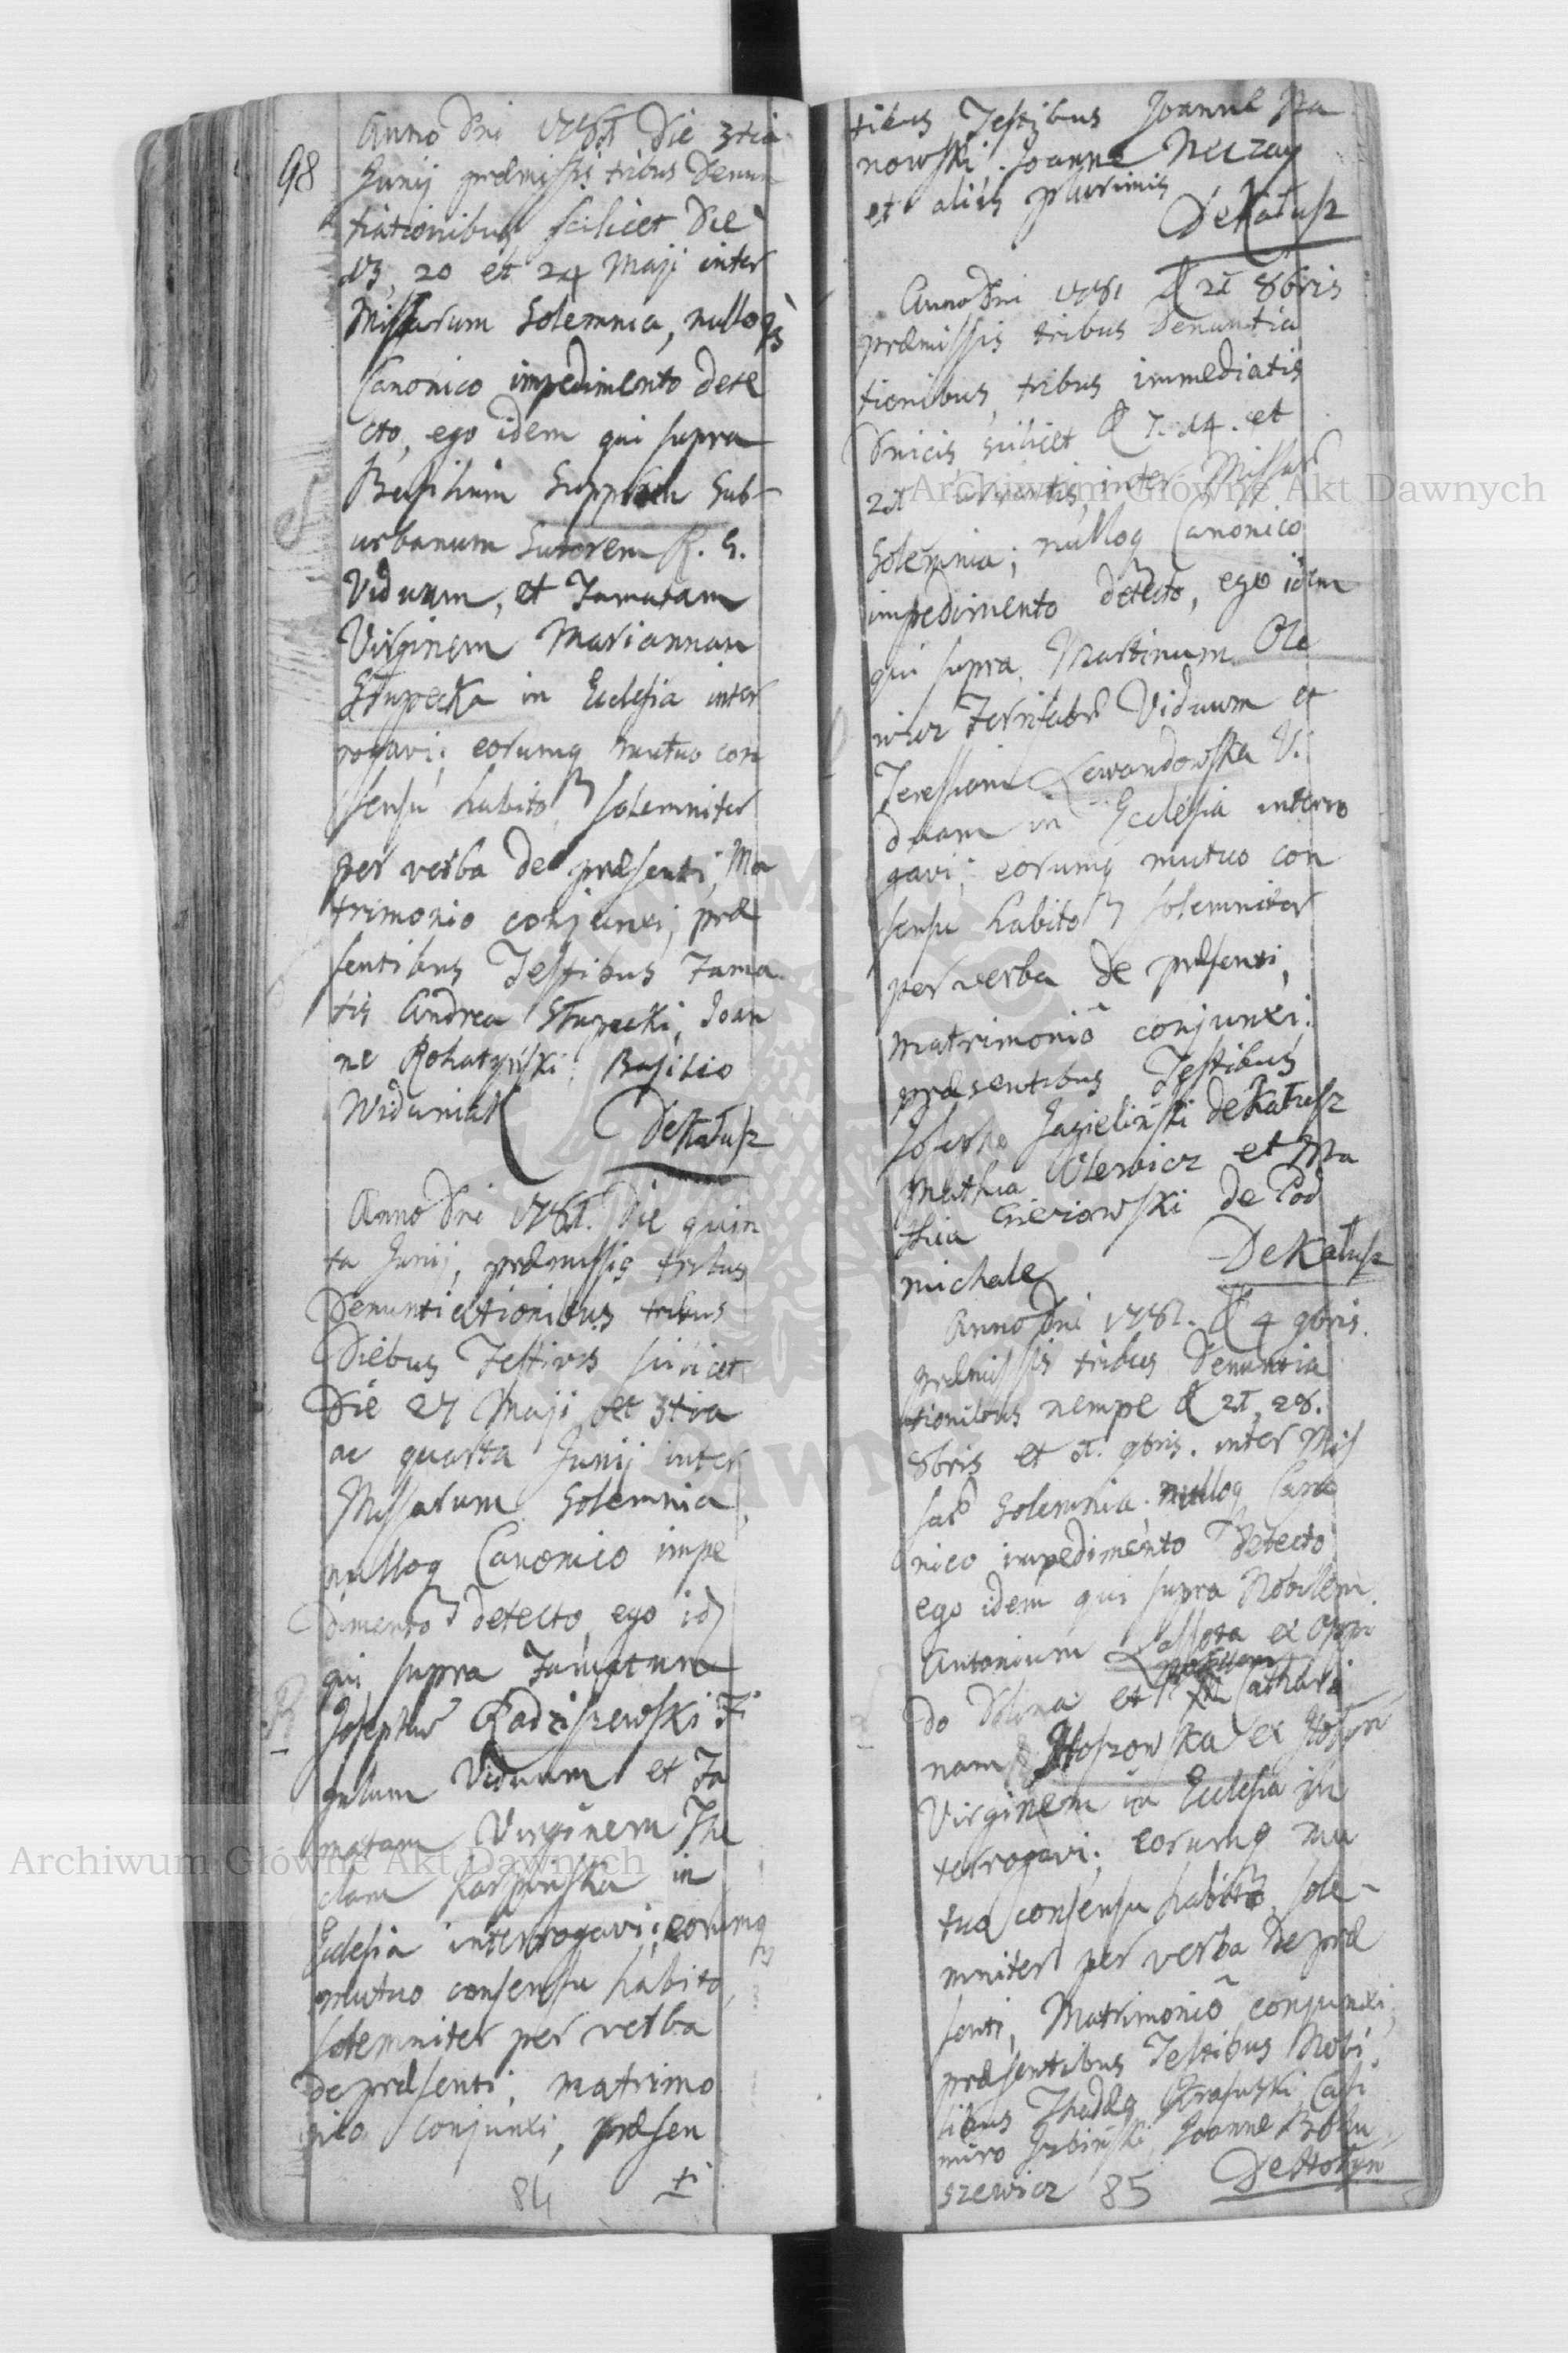 98
Anno Dni 1781 Die 3tia
Junij præmissis tribus Denun
tiationibus scilicet Die
13, 20 et 24 Maji inter
Missarum Solemnia, nulloq
Canonico impedimento dete
cto, ego idem qui supra
Basilium Sub-
urbanum Sutorem R. G.
Viduum, et Famatam
Virginem Mariannam
Słupecka in Ecclesia inter
rogavi; eorumq mutuo con
sensu habito, solemniter
per verba de præsenti, Ma
trimonio conjunxi, præ
sentibus Testibus Fama
tis Andrea Słupecki, Joan
ne Rohatyński, Basilio
Widuniak
DeKałusz
Anno Dni 1781. Die quin
ta Junij, præmissis tribus
Denuntiationibus tribus
Diebus Festivis scilicet
Die 27 Maji et 3tia
ac quarta Junij inter
Missarum Solemnia,
nulloq Canonico impe
dimento detecto, ego id
qui supra Famatum
Josephum Radziszewski Fi
gulum Viduum et Fa
matam Virginem The
clam Karpinska in
Ecclesia interrogavi; eorumq
mutuo consensu habito,
solemniter per verba
de præsenti, matrimo
nio conjunxi, præsen
ti
84
tibus Testibus Joanne Pa
nowski, Joanne
et aliis plurimis
DeKałusz
Anno Dni 1781 D 21 8bris
præmissis tribus Denuntia
tionibus, tribus immediatis
Dnicis scilicet D 7. 14. et
21 inter Missar
Solemnia; nulloq Canonico
impedimento detecto, ego idem
qui supra, Martinum Ole
wicz Viduum et
Teressiam Lewandowska Vi
duam in Ecclesia interro
gavi; eorumq mutuo con
sensu habito solemniter
per verba de præsenti,
matrimoniō conjunxi;
præsentibus Testibus
Josepho Jagieliński deKałusz
Mathia Olewicz et Ma
thia de Pod
michale
DeKałusz
Anno Dni 1781. D 4 9bris.
præmissis tribus Denuntia
tionibus nempe D 21, 28.
8bris et 1. 9bris. inter Mis
sar Solemnia, nulloq Cano
nico impedimento detecto
ego idem qui supra Nobilem
Antonium Lassota ex Oppi
do Dolina et Cathari
nam Hoszowska ex Hołyn
Virginem in Ecclesia in
terrogavi; eorumq mu
tuo consensu habito, sole-
mniter per verba de præ
senti, Matrimoniō conjunxi,
præsentibus Testibus Nobi
libus Thaddeo Casi
miro Joanne Bohu
szewicz
DeHołyn
85
Archiwum Główne Akt Dawnych
Archiwum Główne Akt Dawnych